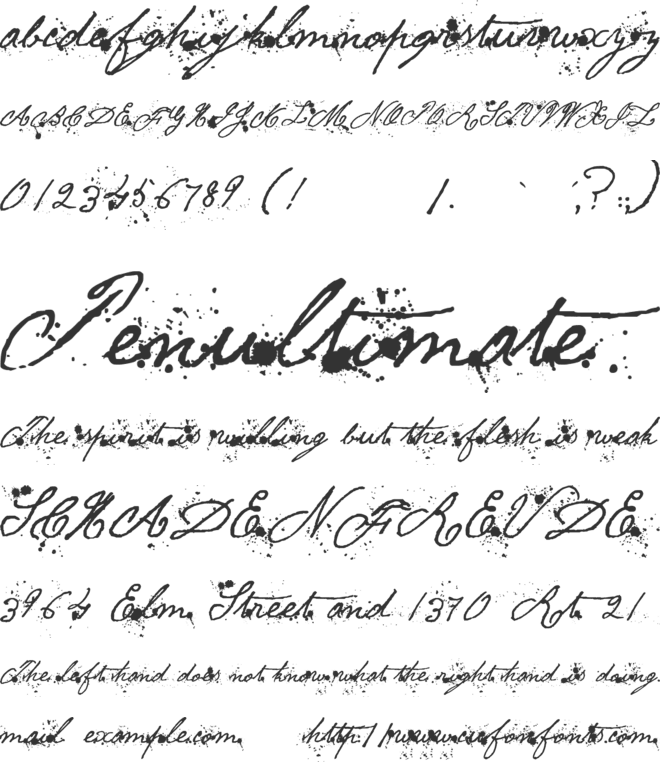 abcdefghijklmnopqrstuvwxyz
ABCDEFGHIJKLMNOPQRSTUVWXYZ
0123456789 (! /. ` ;?:;)
Penultimate.
The spirit is willing but the flesh is weak
SCHADENFREUDE
3964 Elm Street and 1370 Rt. 21
The left hand does not know what the right hand is doing.
mail example.com. http://www.cufonfonts.com.